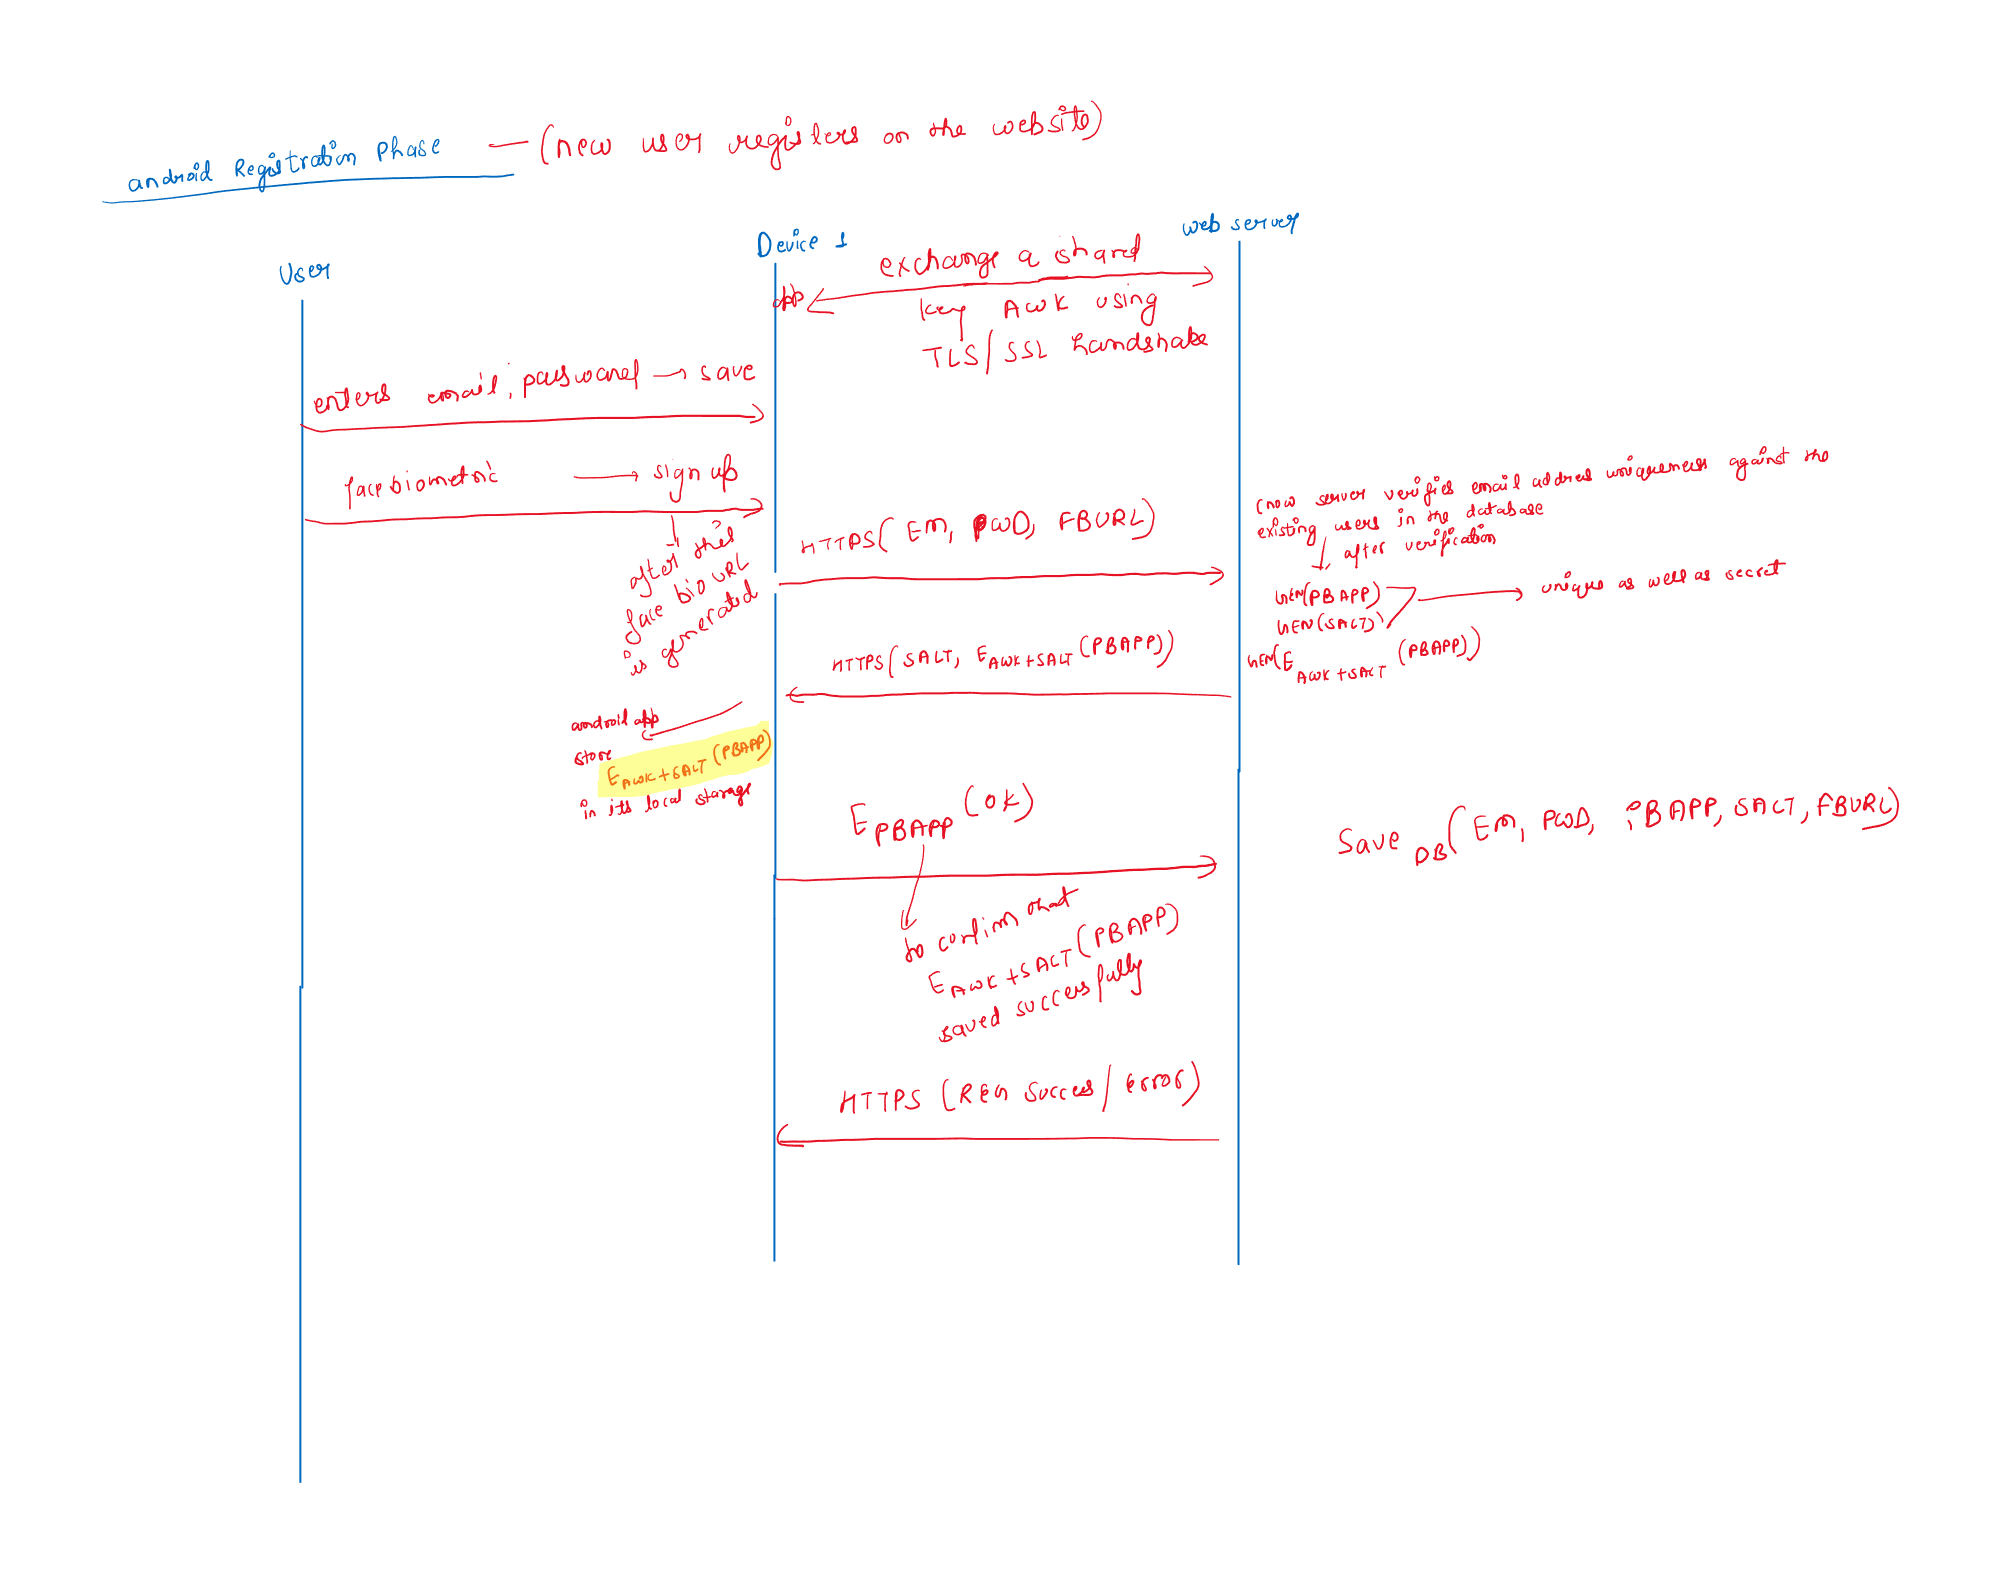 android Registration Phase — (new user registers on the website)
User
Device 1
web server
app
exchange a shared
key AWK using
TLS/SSL handshake
enters email, password → save
face biometric → sign up
after this
face bio URL
is generated
HTTPS(EM, PWD, FBURL)
(now server verifies email address uniqueness against the
existing users in the database
↓ after verification
GEN(PBAPP)
GEN(SALT)
→ unique as well as secret
GEN(E AWK+SALT (PBAPP))
HTTPS(SALT, E AWK+SALT (PBAPP))
android app
store
E AWK+SALT (PBAPP)
in its local storage
E PBAPP (OK)
to confirm that
E AWK+SALT (PBAPP)
saved successfully
Save DB(EM, PWD, PBAPP, SALT, FBURL)
HTTPS (REG Success/error)